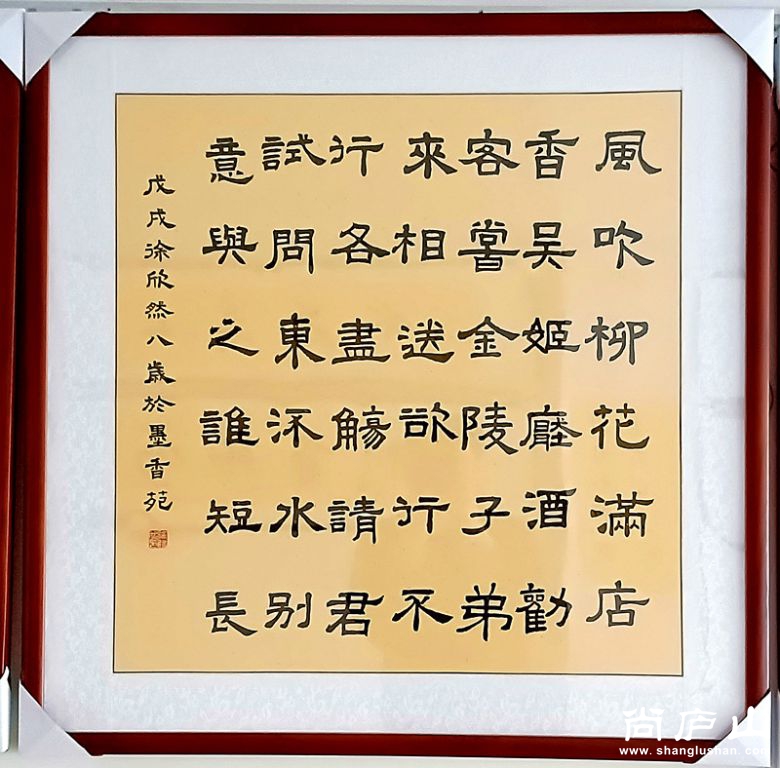 風吹柳花滿店
香吴姬壓酒勸
客嘗金陵子弟
來相送欲行不
行各盡觴請君
試問東流水别
意與之誰短長
戊戌徐欣然八歲於墨香苑
尚庐山
www.shanglushan.com